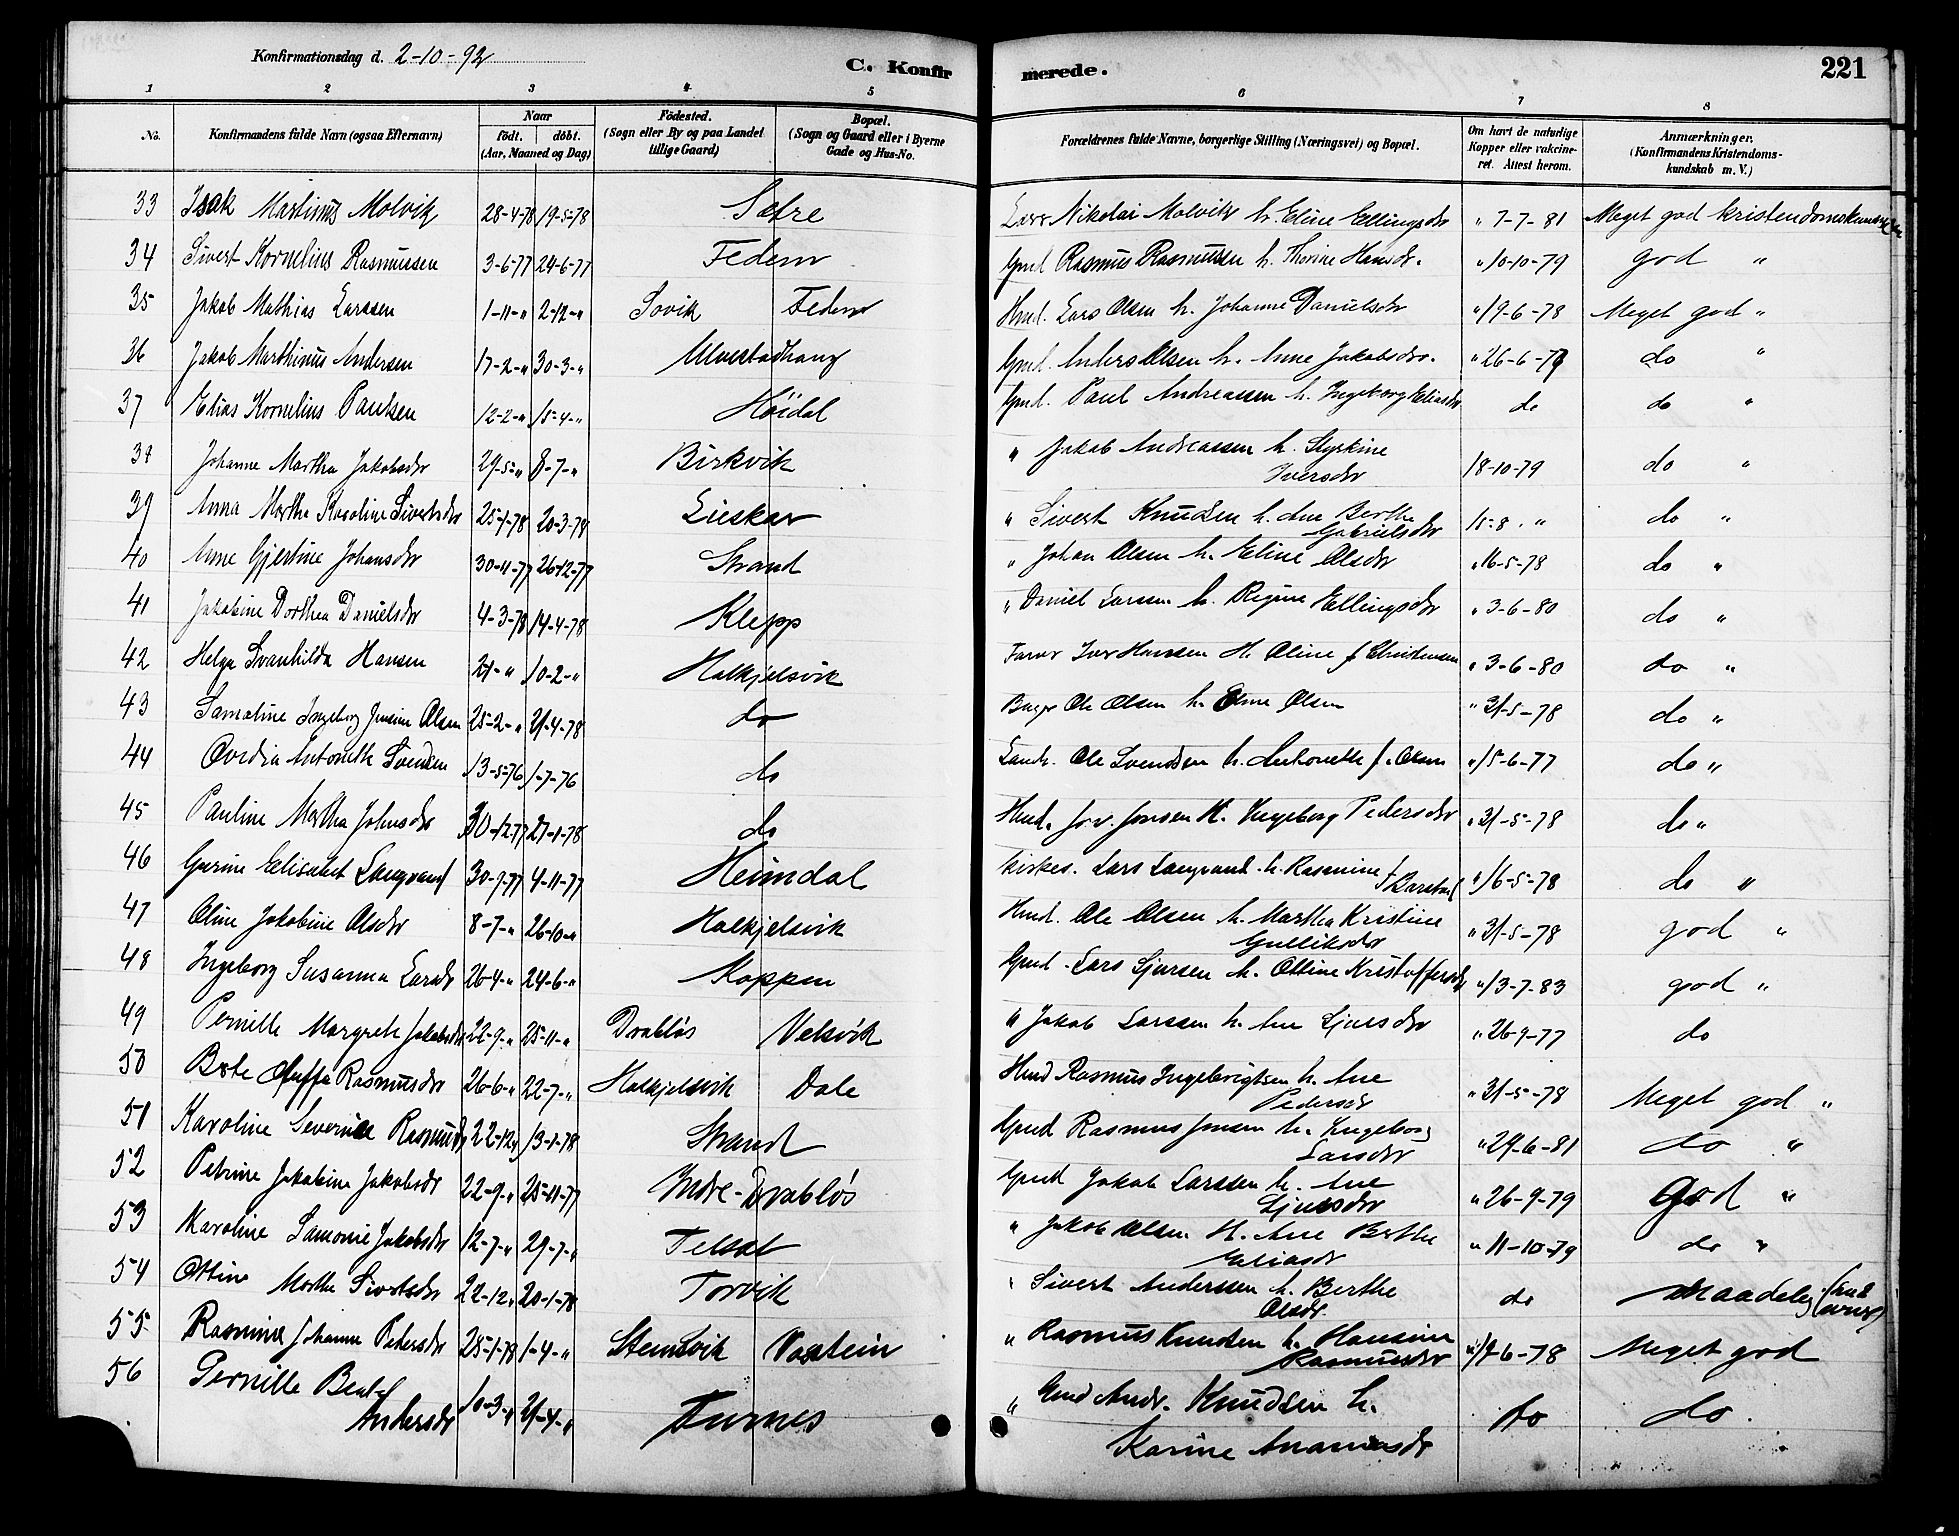 Konfirmationsdag d. 2-10-92 C. Konfirmerede. 221
1 2 3 4 5 6 7 8
No. Konfirmandens fulde Navn (ogsaa Efternavn) Naar födt. döbt. (Aar, Maaned og Dag) Födested. (Sogn eller By og paa Landet tillige Gaard) Bopæl. (Sogn og Gaard eller i Byerne Gade og Hus-No. Forældrenes fulde Navne, borgerlige Stilling (Næringsvei) og Bopæl. Om havt de naturlige Kopper eller vakcineret. Attest herom. Anmærkninger. (Konfirmandens Kristendomskundskab m. V.)
33 Isak Martinus Molvik 28-4-78 19-5-78 Sætre Nikolai Molvik h. Eline Ellingsdr " 7-7-81 Meget god kristendomskundsk
34 Sivert Kornelius Rasmussen 3-6-77 24-6-77 Gmd Rasmus Rasmussen h. Thorine Hansdr. " 10-10-79 god "
35 Jakob Mathias Larssen 1-11-" 2-12-" Sovik Hmd. Lars Olsen h. Johanne Danielsdr " 19-6-78 Meget god "
36 Jakob Marthinus Andersen 17-2-" 30-3-" Ulvestadhaug Gmd. Anders Olsen h. Anne Jakobsdr. " 26-6-79 do "
37 Elias Kornelius Paulsen 12-2-" 15-4-" Höidal Gmd. Paul Andreassen h. Ingeborg Eliasdr do do "
38 Johanne Martha Jakobsdr 29-5-" 8-7-" Birkvik " Jakob Andreassen h. Styrkine Iversdr 18-10-79 do "
39 Anna Martha Karoline Sivertsdr 25-1-78 20-3-78 Lieskar " Sivert Knudsen h. Ane Berthe Gabrielsdr 15-8-" do "
40 Anne Gjertine Johansdr 30-11-77 26-12-77 Strand " Johan Olsen h. Eline Olsdr " 16-5-78 do "
41 Jakobine Dorthea Danielsdr 4-3-78 14-4-78 Klepp " Daniel Larsen h. Regine Ellingsdr " 3-6-80 do "
42 Helga Svanhilda Hansen 10-2-" Halkjelsvik Iver Hanssen H. Oline f Christensen " 3-6-80 do "
43 Samoline Ingeborg Jensine Olsen 25-2-" 21-4-78 do Ole Olsen h. Olsen " 31-5-78 do "
44 Ovidia Antonette Svendsen 13-5-76 1-7-76 do Ole Svendsen h. Antonette f. Olsen " 15-6-77 do "
45 Pauline Martha Johnsdr 30-12-77 27-1-78 do Hmd. Jonsen H. Ingeborg Pedersdr " 31-5-78 do "
46 Gurine Elisabet Langvand 30-9-77 4-11-77 Heimdal Kirkes. Lars Langvand h. Rasmine f Barstad " 16-5-78 do "
47 Oline Jakobine Olsdr 8-7-" 26-10-" Halkjelsvik Hmd. Ole Olsen h. Martha Kristine Gulliksdr " 31-5-78 god "
48 Ingeborg Susanna Larsdr 26-4-" 24-6-" Koppen Gmd. Lars Sjursen h. Ottine Kristoffersdr " 13-7-83 god "
49 Pernille Margrete Jakobsdr 22-9-" 25-11-" Drabløs Velsvik " Jakob Larssen h. Ane Sjursdr " 26-9-77 do
50 Berte Rasmusdr 26-6-" 22-7-" Halkjelsvik Dale Hmd Rasmus Ingebrigtsen h. Ane Pedersdr " 31-5-78 Meget god "
51 Karoline Severine Rasmusdr 22-12-" 13-1-78 Strand Gmd Rasmus Jensen h. Ingeborg Larsdr " 29-6-81 do "
52 Petrine Jakobine Jakobsdr 22-9-" 25-11-77 Indre-Drabløs Gmd Jakob Larssen h. Ane Sjursdr " 26-9-79 God "
53 Karoline Samonie Jakobsdr 12-7-" 29-7-" " Jakob Olsen H. Ane Berthe Eliasdr " 11-10-79 do "
54 Ottine Marthe Sivertsdr 22-12-" 20-1-78 Torvik " Sivert Anderssen h. Berthe Olsdr. do Maadelig
55 Rasmine Johanne Petersdr 28-1-78 1-4-" Stensvik Vartein " Rasmus Knudsen h. Hansine Rasmusdr -6-78 Meget god
56 Pernille Andersdr 10-3-" 21-4-" Furnes " Gmd Andr. Knudsen h. Karine Ananiasdr do do.